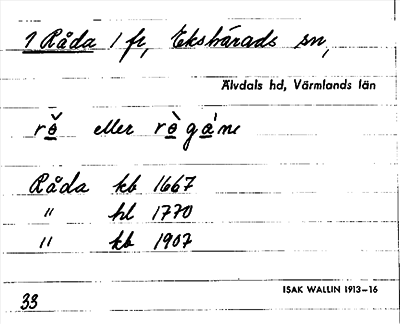 1 Råda 1 fr, Ekshärads sn,
Älvdals hd, Värmlands län
rè̌ eller rè gáne
Råda kb 1667
" hl 1770
" kb 1907
ISAK WALLIN 1913–16
33